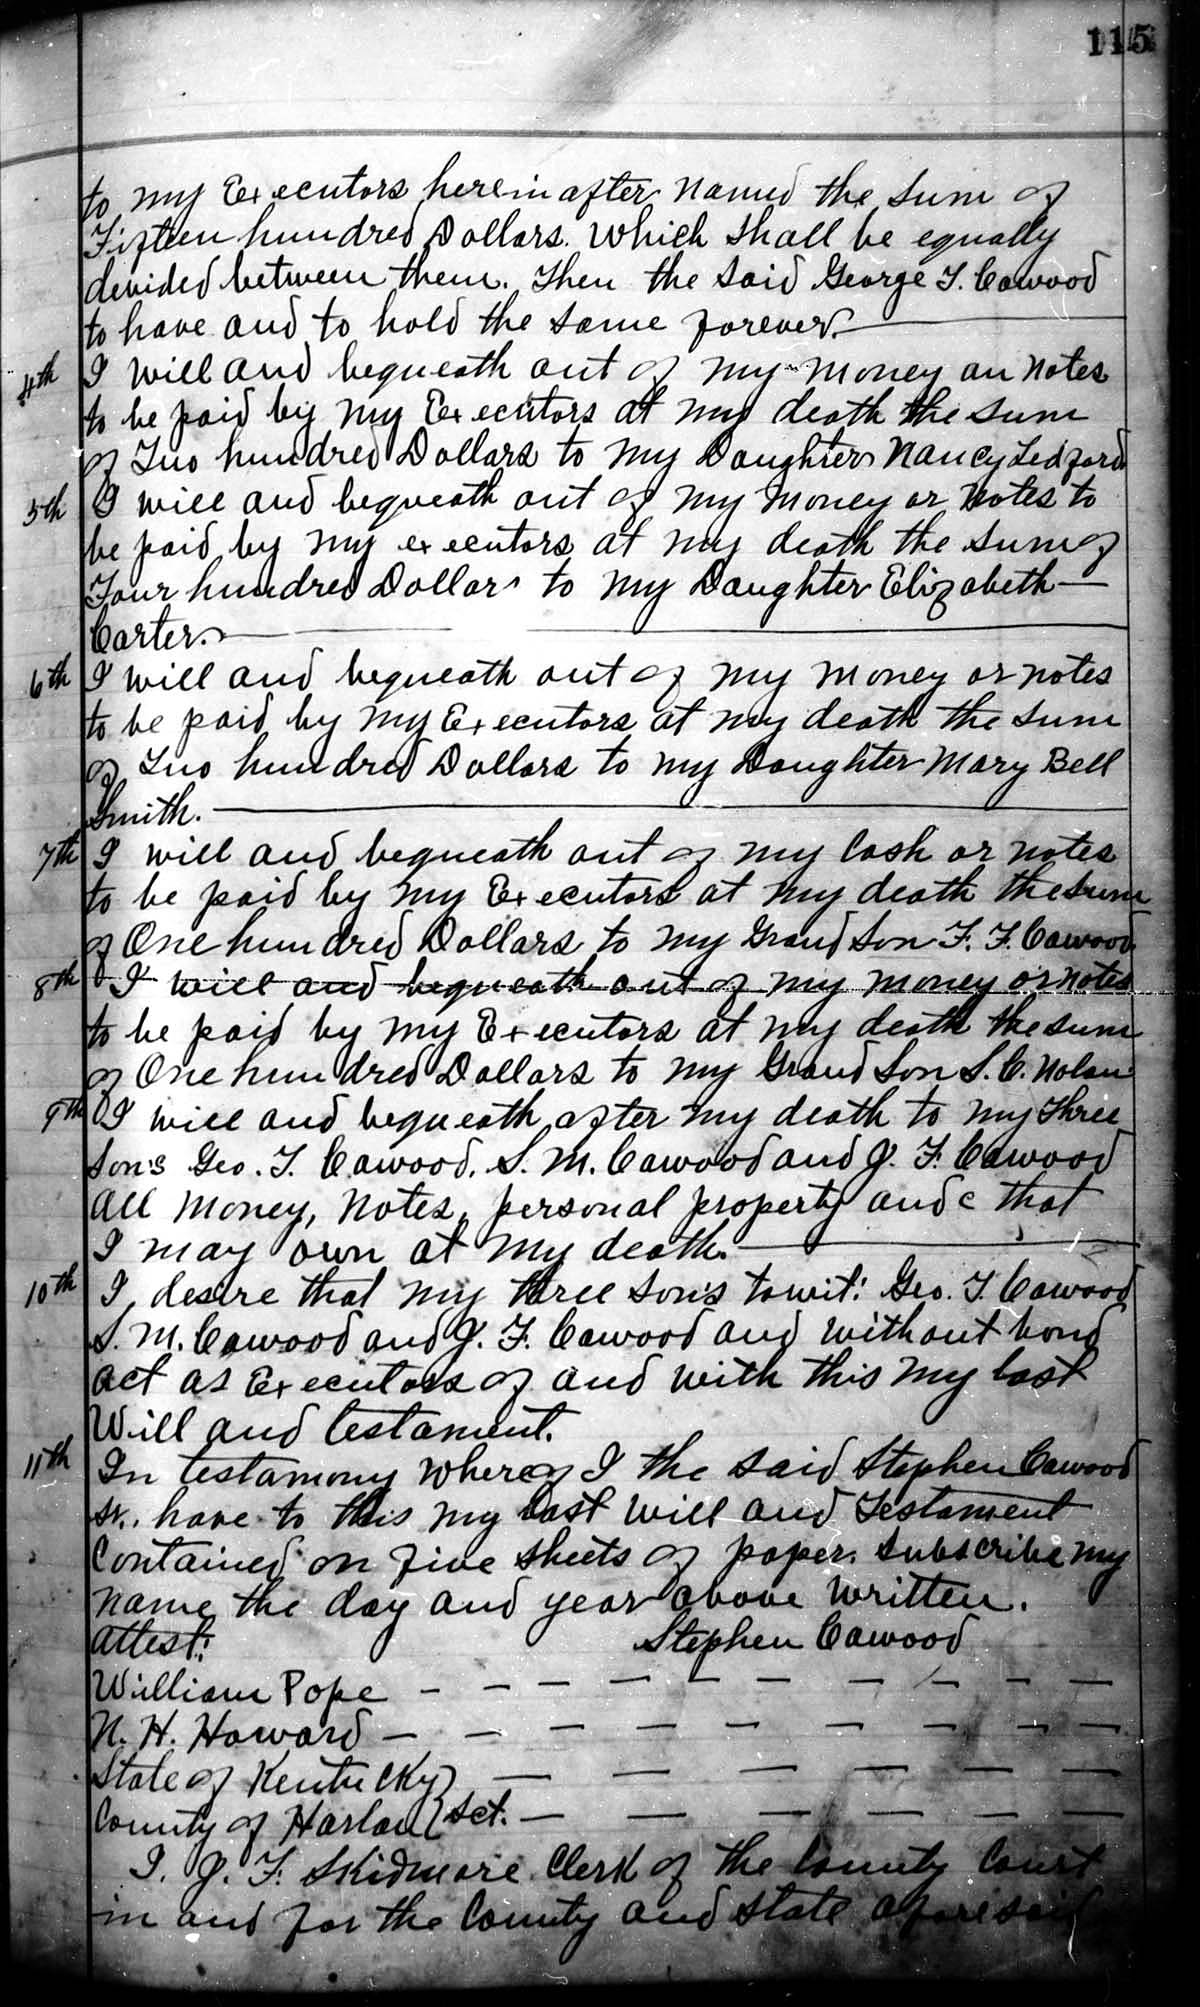 115
to my Executors herein after named the sum of
Fifteen hundred Dollars. Which shall be equally
devided between them. Then the said George T. Cawood
to have and to hold the same forever.
4th I will and bequeath out of my money an notes
to be paid by my Executors at my death the sum
of Two hundred Dollars to my Daughter Nancy Ledford
5th I will and bequeath out of my money or notes to
be paid by my executors at my death the sum of
Four hundred Dollars to my Daughter Elizabeth
Carter.
6th I will and bequeath out of my money or notes
to be paid by my Executors at my death the sum
of Two hundred Dollars to my Daughter Mary Bell
Smith.
7th I will and bequeath out of my Cash or notes
to be paid by my Executors at my death the sum
of One hundred Dollars to my Grand Son F. F. Cawood
8th I will and bequeath out of my money or notes
to be paid by my Executors at my death the sum
of One hundred Dollars to my Grand Son S. C. Nolan
9th I will and bequeath after my death to my Three
Son's Geo. T. Cawood, S. M. Cawood and J. F. Cawood
all money, notes, personal property and c that
I may own at my death.
10th I desire that my three son's towit: Geo. T. Cawood
S. M. Cawood and J. F. Cawood and without bond
act as Executors of and with this my last
Will and testament.
11th In testamony whereof I the said Stephen Cawood
Sr. have to this my last will and Testament
Contained on five sheets of paper. subscribe my
name the day and year above written.
attest: Stephen Cawood
William Pope
N. H. Howard
State of Kentucky
County of Harlan Sct.
I. J. F. Skidmore Clerk of the County Court
in and for the County and State aforesaid